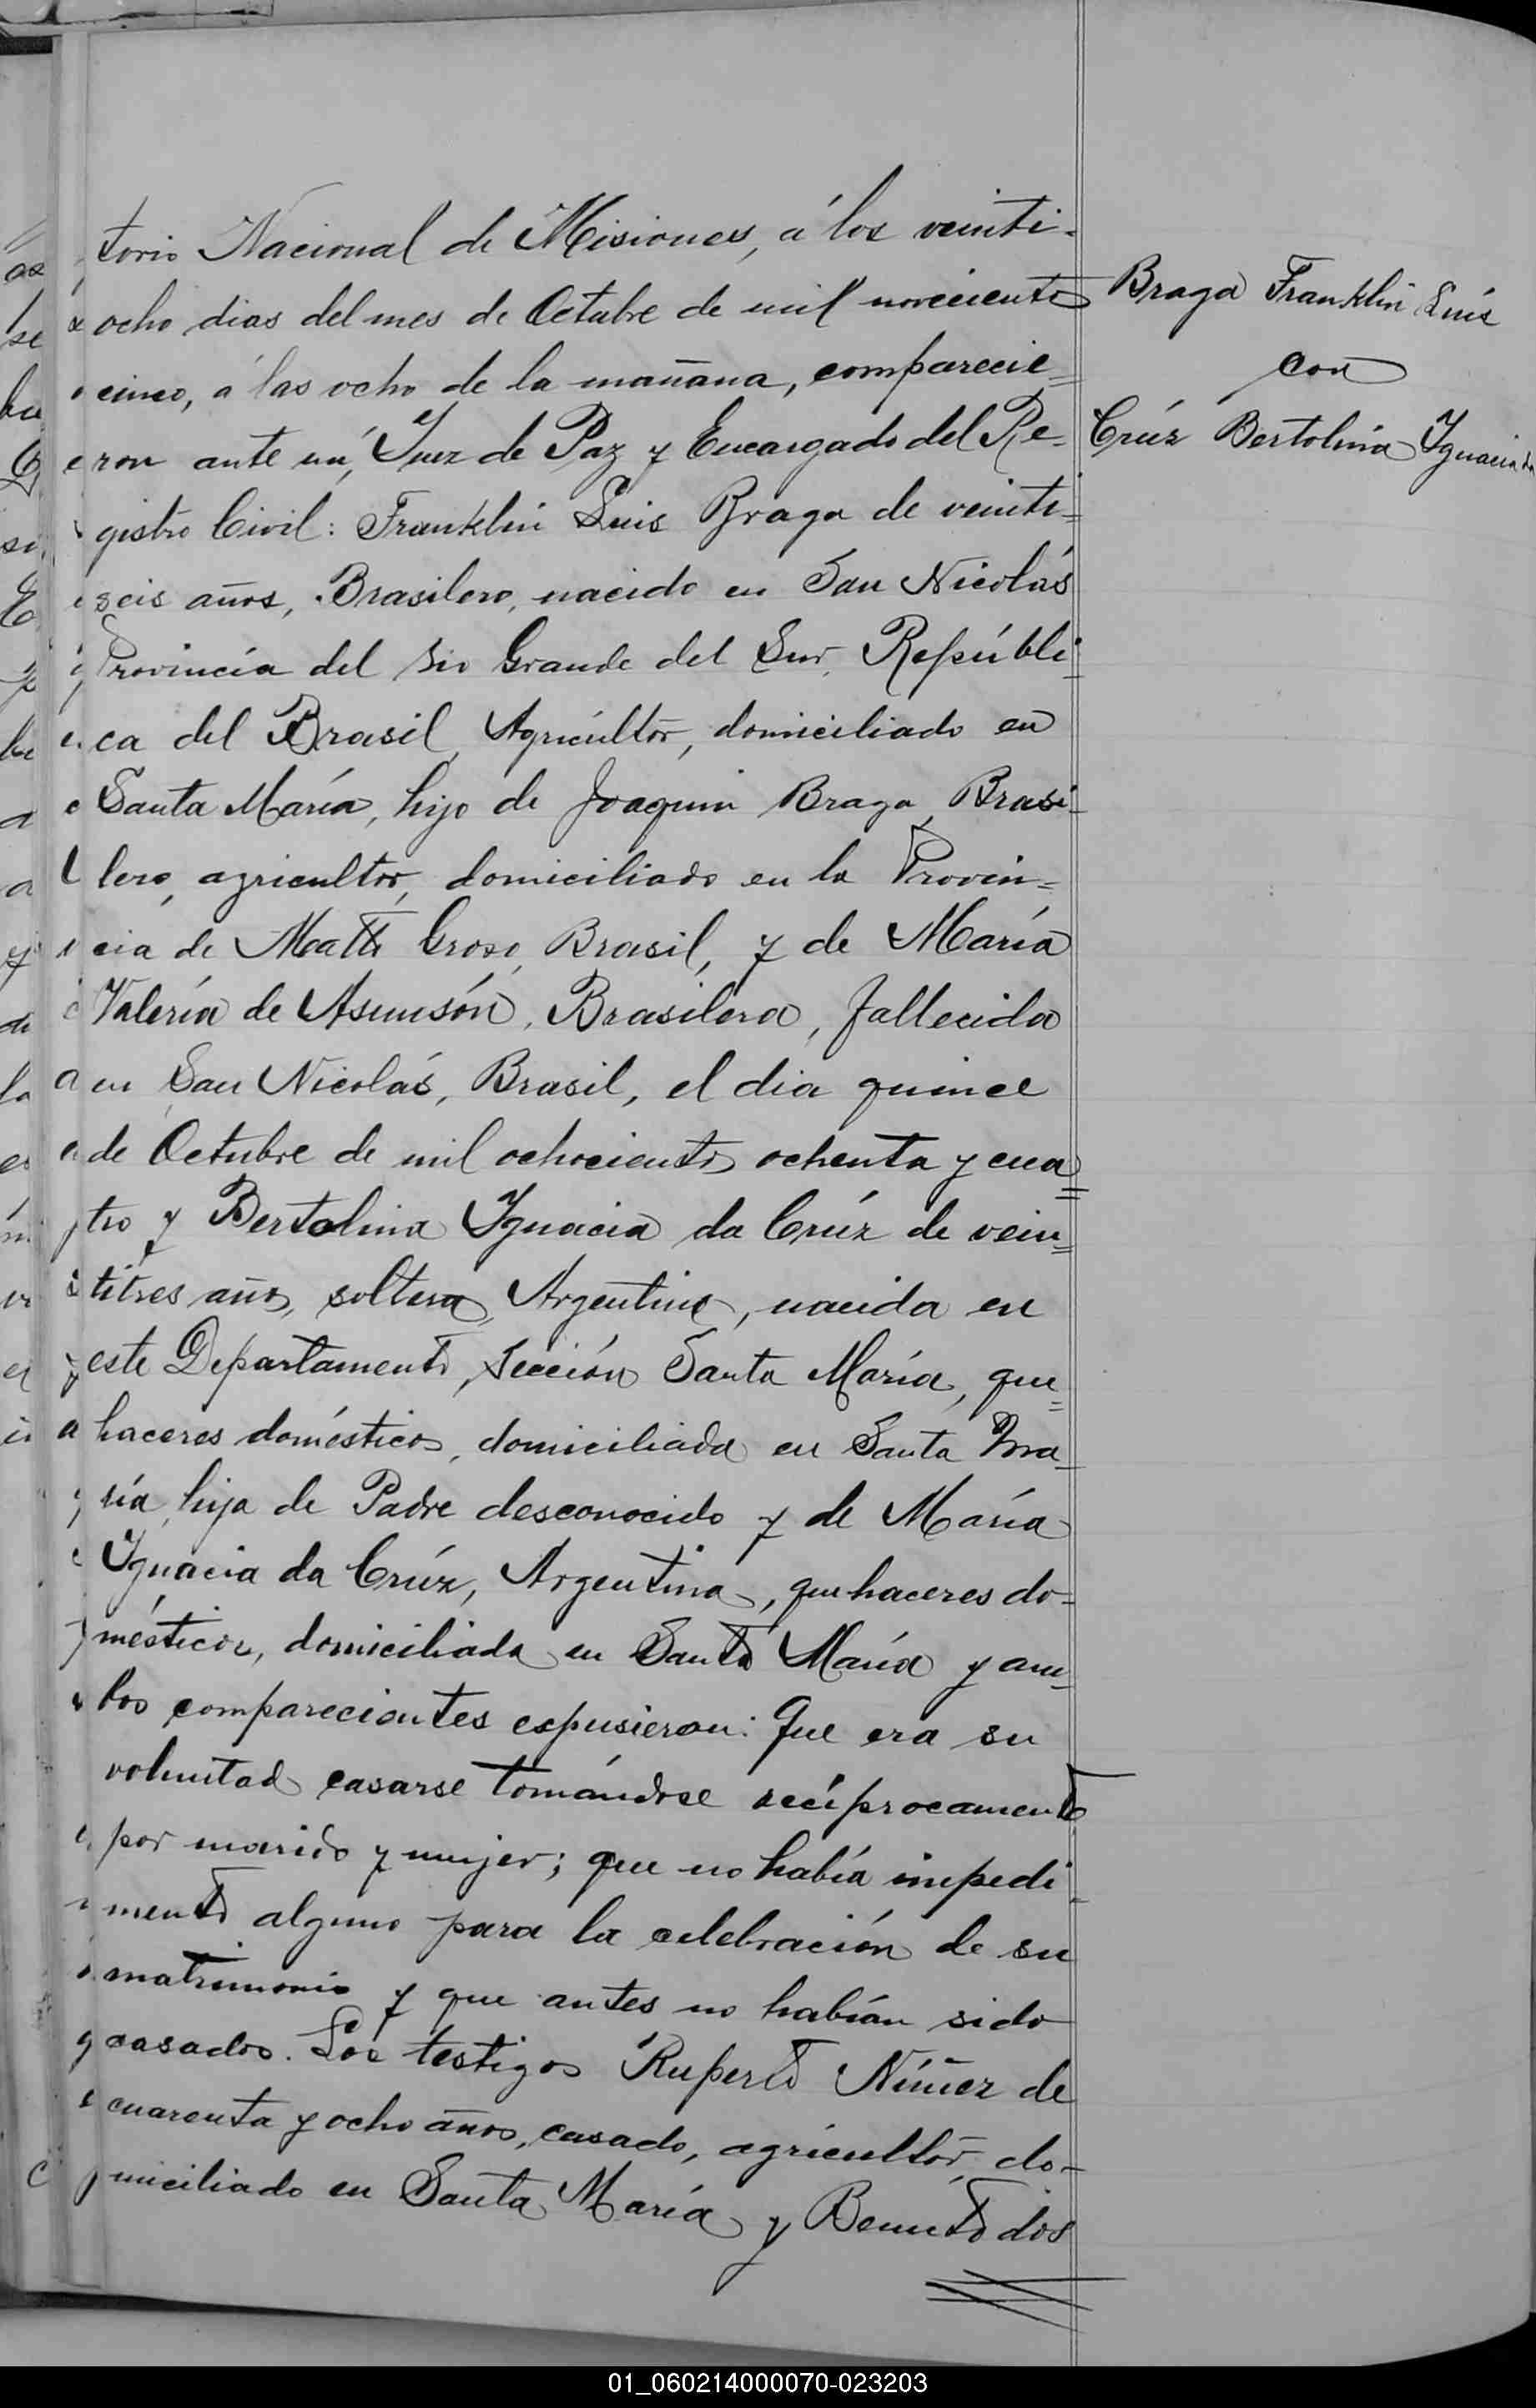 torio Nacional de Misiones, á los veinti-
ocho dias del mes de Octubre de mil novecientos
cinco, á las ocho de la mañana, comparecie=
ron ante mí, Juez de Paz y Encargado del Re-
gistro Civil: Franklin Luis Braga de veinti=
seis años, Brasilero, nacido en San Nicolás
Provincia del Rio Grande del Sur, Repúbli-
ca del Brasil, Agricultor, domiciliado en
Santa María, hijo de Joaquin Braga, Brasi-
lero, agricultor, domiciliado en la Provin=
cia de Matto Groso, Brasil, y de María
Valería de Asunsón, Brasilera, fallecida
en San Nicolás, Brasil, el dia quince
de Octubre de mil ochocientos ochenta y cua=
tro y Bertolina Ignacia da Crúz de vein=
titres años, soltera, Argentina, nacida en
este Departamento, Sección Santa María, que=
haceres domésticos, domiciliada en Santa Ma-
ría, hija de Padre desconocido y de María
Ignacia da Crúz, Argentina, quehaceres do=
mésticos, domiciliada en Santa María y am-
bos comparecientes espusieron: Que era su
voluntad casarse tomándose recíprocamente
por marido y mujer; que no había impedi-
mento alguno para la celebración de su
matrimonio y que antes no habían sido
casados. Los testigos Ruperto Núñez de
cuarenta y ocho años, casado, agricultor, do-
miciliado en Santa María y Benito dos
Braga Franklin Luís
con
Crúz Bertolina Ignacia da
01_060214000070-023203